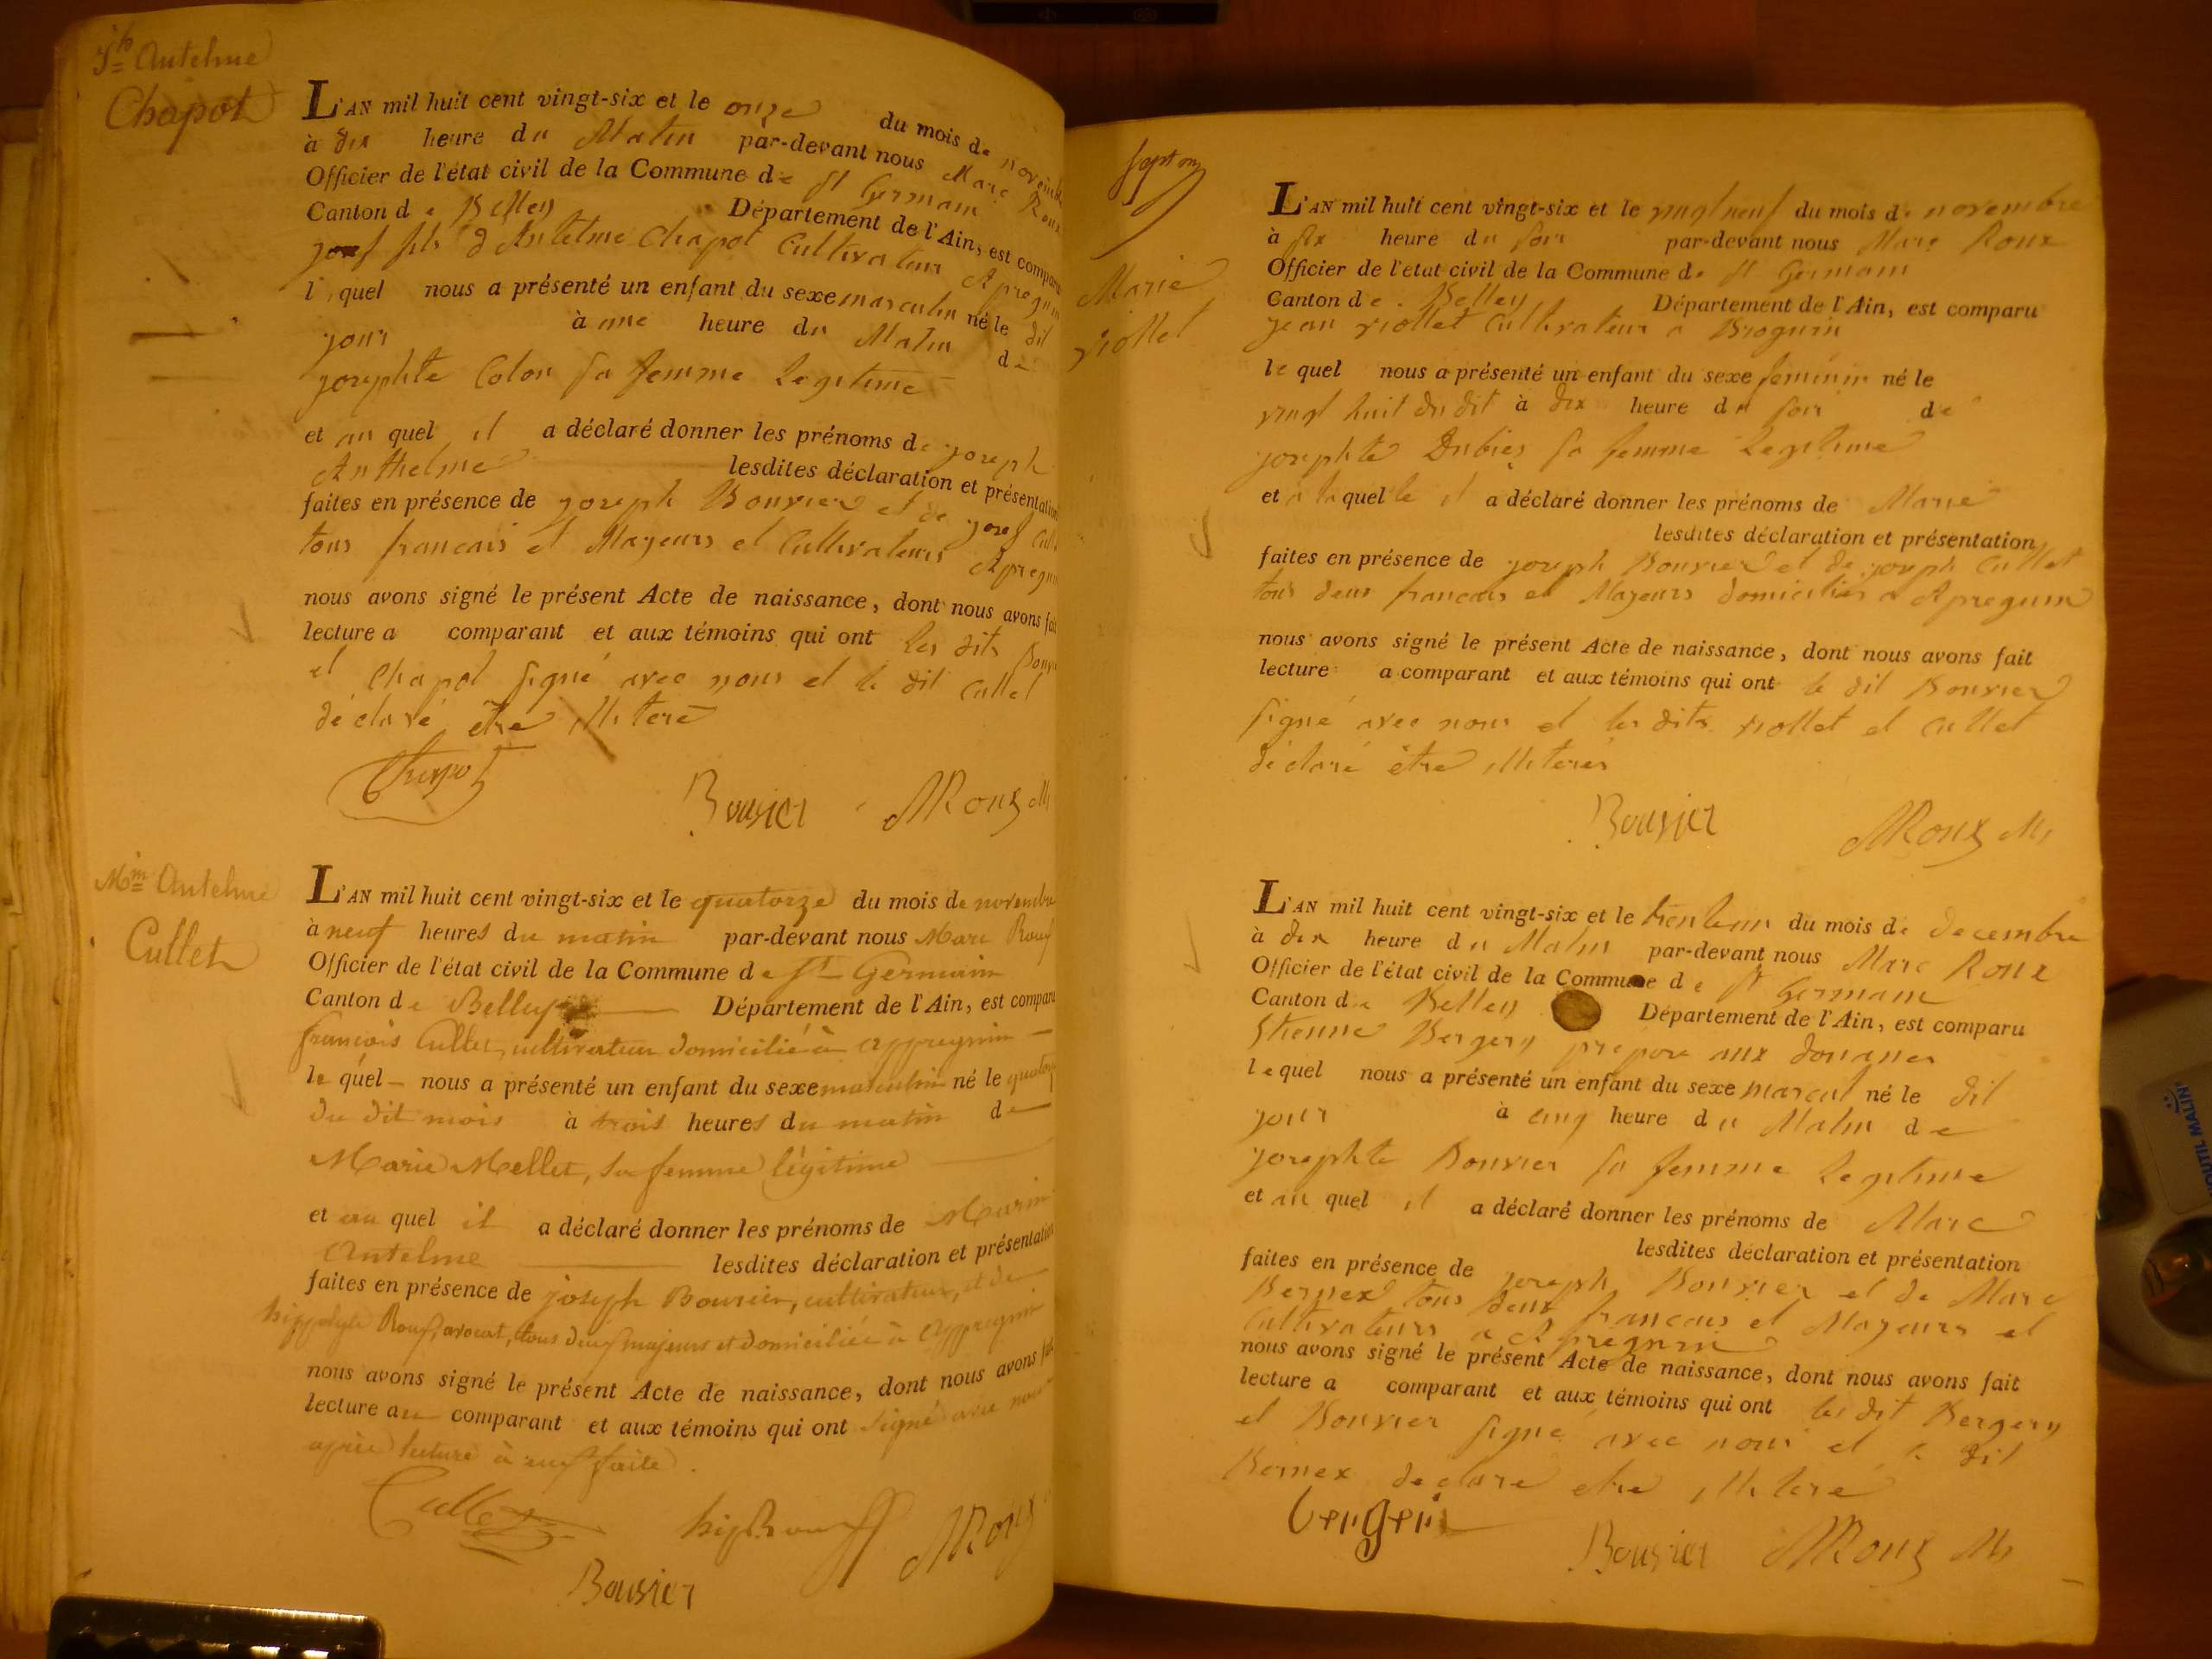 Jh Antelme
Chapot
L'AN mil huit cent vingt-six et le onze du mois de novembre
à dix heure du Matin par-devant nous Marc Roux
Officier de l'état civil de la Commune de St Germain
Canton de Belley Département de l'Ain, est comparu
josef fils d Antelme Chapot Cultivateur Apregnin
l quel nous a présenté un enfant du sexe masculin né le dit
jour à une heure du Matin de
josephte Colon sa femme Legitime
et au quel il a déclaré donner les prénoms de joseph
Anthelme lesdites déclaration et présentation
faites en présence de joseph Bouvier et de josef Cull
tous francais et Majeurs et Cultivateurs Apregnin
nous avons signé le présent Acte de naissance, dont nous avons fait
lecture a comparant et aux témoins qui ont les dits Bouv
et Chapot signé avec nous et le dit Cullet
déclaré être illiteré
Chapot
Bouvier MRoux M
Min Antelme
Cullet
L'AN mil huit cent vingt-six et le quatorze du mois de novembre
à neuf heures du matin par-devant nous Marc Roux
Officier de l'état civil de la Commune de St Germain
Canton de Belley Département de l'Ain, est comparu
françois Cullet, cultivateur domicilié à appregnin
le quel nous a présenté un enfant du sexe masculin né le quatorze
du dit mois à trois heures du matin de
Marie Mellet, sa femme légitime
et au quel il a déclaré donner les prénoms de Marin
Antelme lesdites déclaration et présentation
faites en présence de joseph Bouvier, cultivateur, et de
hippolyte Roux, avocat, tous deux majeurs et domiciliés à appregnin
nous avons signé le présent Acte de naissance, dont nous avons fait
lecture au comparant et aux témoins qui ont signé avec nous
après lecture à eux faite.
Cullet
hip Roux MRoux
Bouvier
Marie
viollet
L'AN mil huit cent vingt-six et le vingt neuf du mois de novembre
à six heure du soir par-devant nous Marc Roux
Officier de l'etat civil de la Commune de St Germain
Canton de Belley Département de l'Ain, est comparu
jean viollet Cultivateur a Brognin
le quel nous a présenté un enfant du sexe feminin né le
vingt huit du dit à dix heure du soir de
josephte Dubiez sa femme Legitime
et a laquelle il a déclaré donner les prénoms de Marie
lesdites déclaration et présentation
faites en présence de joseph Bouvier et de joseph Cullet
tous deux francais et Majeurs domiciliés a Apregnin
nous avons signé le présent Acte de naissance, dont nous avons fait
lecture a comparant et aux témoins qui ont le dit Bouvier
signé avec nous et les dits viollet et Cullet
déclaré être illiterés
Bouvier MRoux M
L'AN mil huit cent vingt-six et le trenteun du mois de decembre
à dix heure du Matin par-devant nous Marc Roux
Officier de l'état civil de la Commune de St Germain
Canton de Belley Département de l'Ain, est comparu
Etienne Bergery prepose aux douanes
le quel nous a présenté un enfant du sexe mascul né le dit
jour à cinq heure du Matin de
josephte Bouvier sa femme Legitime
et au quel il a déclaré donner les prénoms de Marc
lesdites déclaration et présentation
faites en présence de joseph Bouvier et de Marc
Bernex tous deux francais et Majeurs et
Cultivateurs a Apregnin
nous avons signé le présent Acte de naissance, dont nous avons fait
lecture a comparant et aux témoins qui ont les dit Bergery
et Bouvier signé avec nous et le dit
Bernex declare etre illiteré
Bouvier MRoux M
OUTIL MALIN